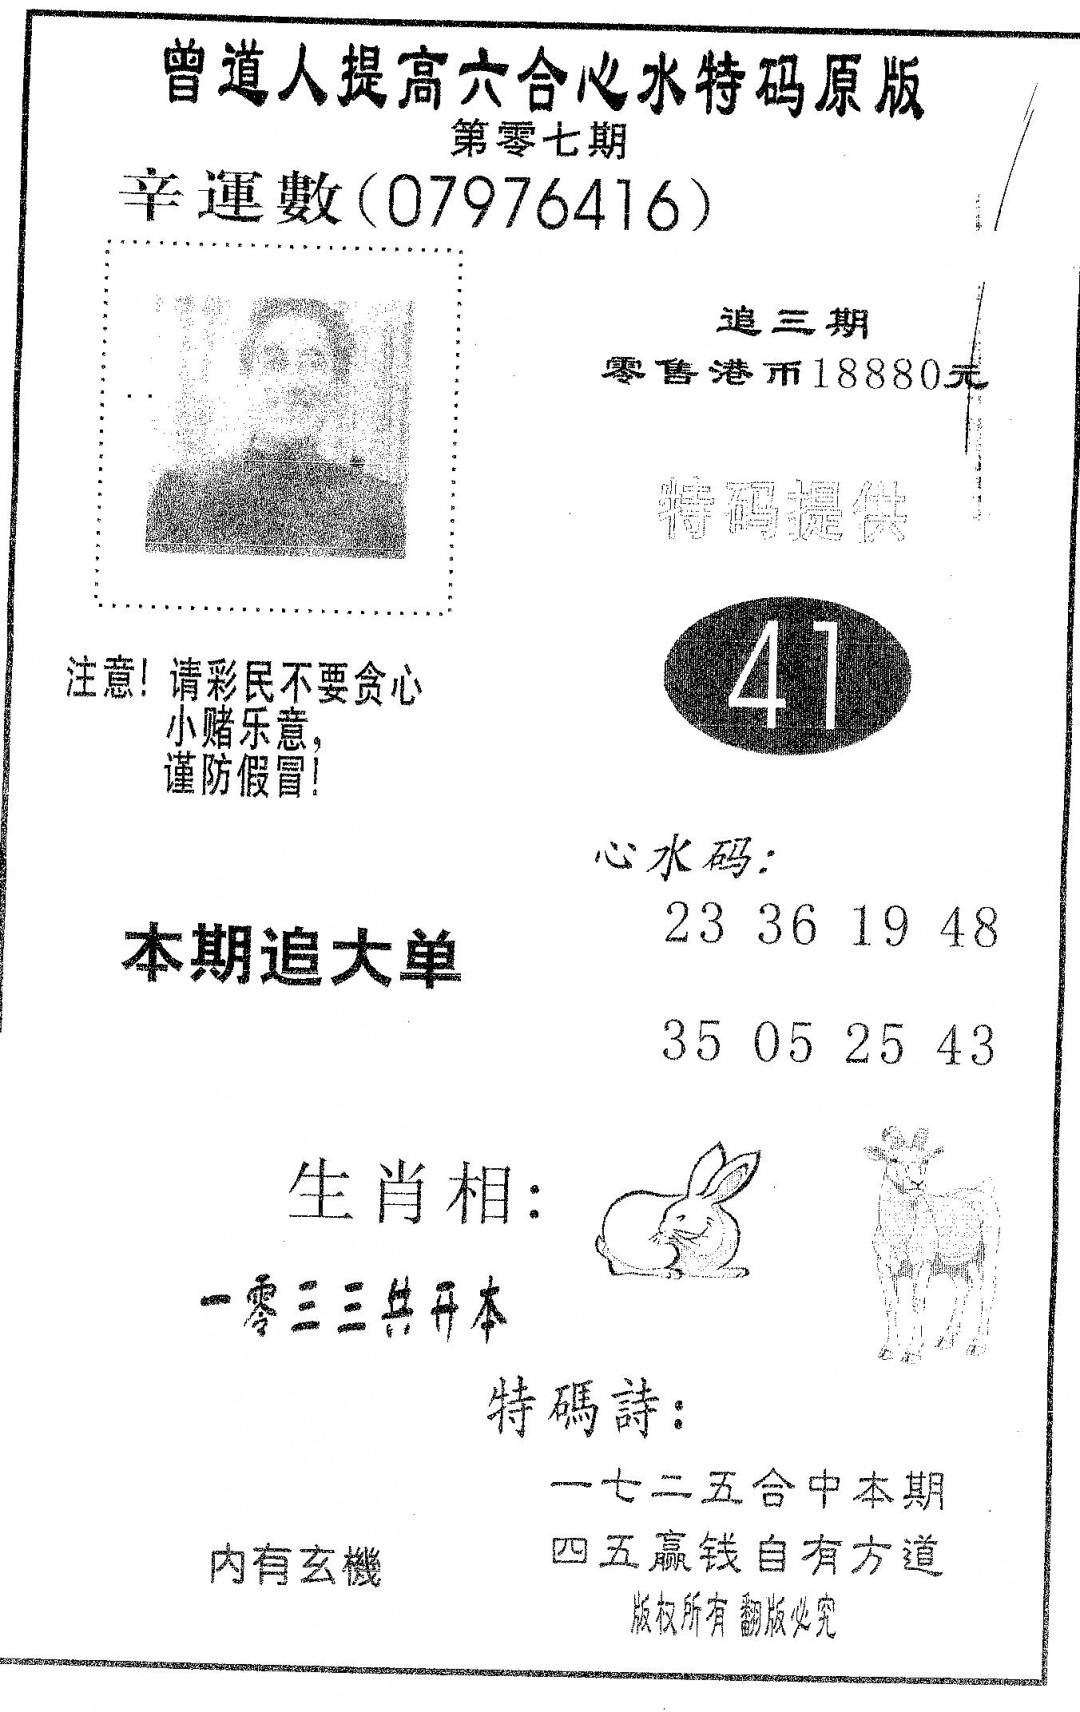 曾道人提高六合心水特码原版
第零七期
辛運數(07976416)
追三期
零售港币18880元
特码提供
41
注意!请彩民不要贪心
小赌乐意,
谨防假冒!
心水码:
23 36 19 48
本期追大单
35 05 25 43
生肖相:
一零三三共开本
特碼詩:
一七二五合中本期
四五赢钱自有方道
内有玄機
版权所有 翻版必究